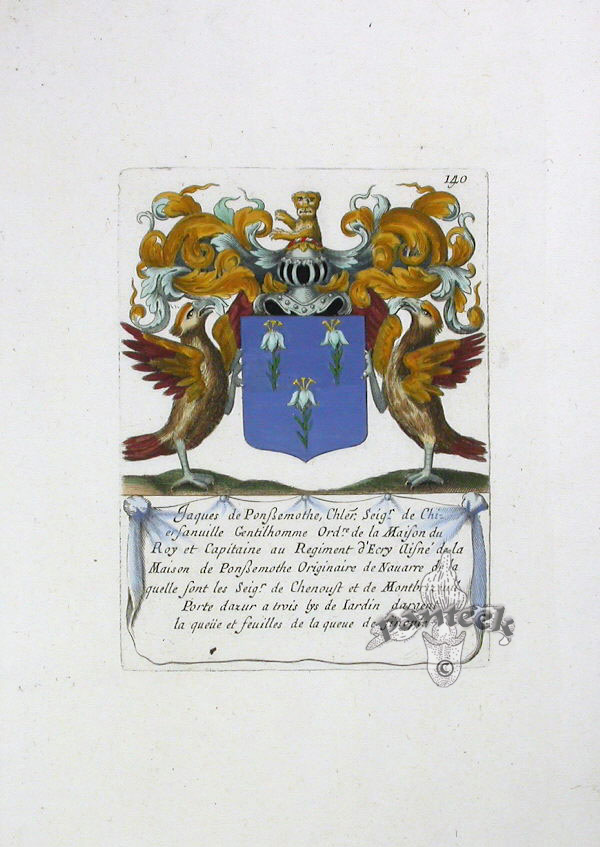 140
Jaques de Ponßemothe, Chler, Seigr. de Chi=
ersanuille Gentilhomme Ordre. de la Maison du
Roy et Capitaine au Regiment d'Ecry Aisné de la
Maison de Ponßemothe Originaire de Nauarre de la
quelle sont les Seigr. de Chenoust et de
Porte dazur a trois lys de Iardin dargent
la queüe et feuilles de la queue de
panteek
©